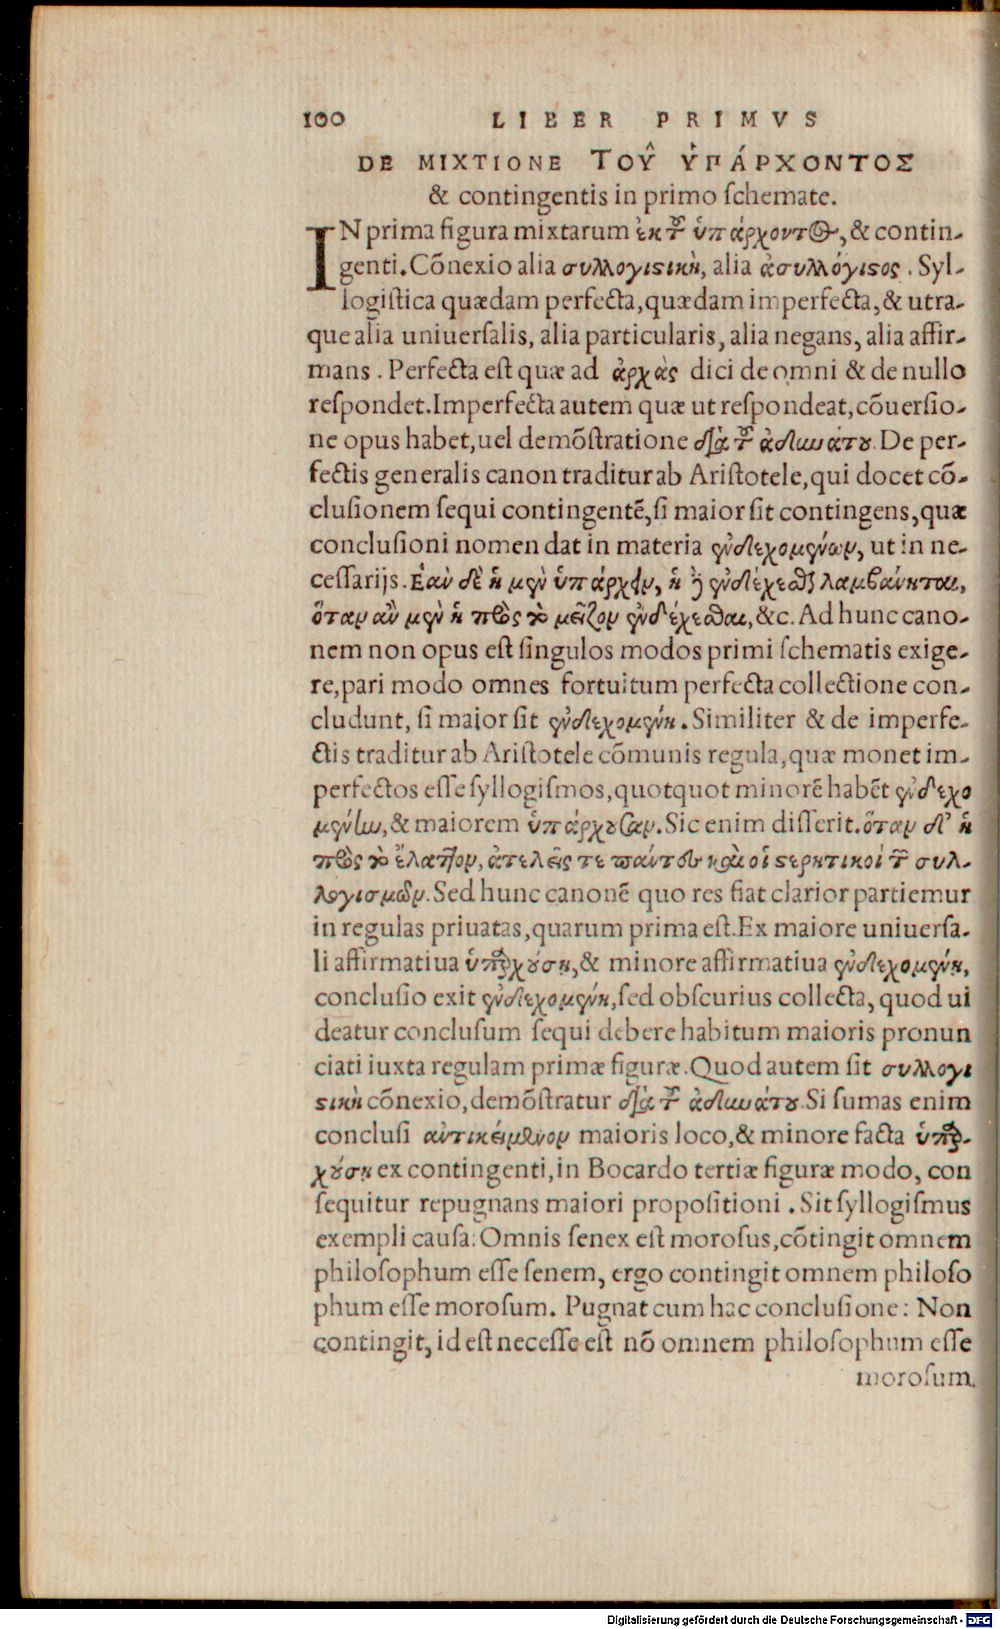 100 LIBER PRIMVS
DE MIXTIONE ΤΟΥ͂ ὙΠΆΡΧΟΝΤΟΣ
& contingentis in primo ſchemate.
IN prima figura mixtarum ἐκ τοῦ ὑπάρχοντος, & contin-
genti. Cōnexio alia συλλογιστικὴ, alia ἀσυλλόγιστος. Syl-
logiſtica quædam perfecta, quædam imperfecta, & utra-
que alia uniuerſalis, alia particularis, alia negans, alia affir-
mans. Perfecta eſt quæ ad ἀρχὰς dici de omni & de nullo
reſpondet. Imperfecta autem quæ ut reſpondeat, cōuerſio-
ne opus habet, uel demōſtratione διὰ τοῦ ἀδυνάτου. De per-
fectis generalis canon traditur ab Ariſtotele, qui docet cō-
cluſionem ſequi contingentē, ſi maior ſit contingens, quæ
concluſioni nomen dat in materia ἐνδεχομένων, ut in ne-
ceſſarijs. Ἐαν δὲ ἡ μὲν ὑπάρχειν, ἡ δὲ ἐνδέχεσθαι λαμβάνηται,
ὅταν αὖν μὲν ἡ πρὸς τὸ μεῖζον ἐνδέχεσθαι, &c. Ad hunc cano-
nem non opus eſt ſingulos modos primi ſchematis exige-
re, pari modo omnes fortuitum perfecta collectione con-
cludunt, ſi maior ſit ἐνδεχομένη. Similiter & de imperfe-
ctis traditur ab Ariſtotele cōmunis regula, quæ monet im-
perfectos eſſe ſyllogiſmos, quotquot minorē habēt ἐνδεχο
μένην, & maiorem ὑπάρχουσαν. Sic enim diſſerit. ὅταν δ' ἡ
πρὸς τὸ ἔλαττον, ἀτελεῖς τε πάντες καὶ οἱ στερητικοὶ τῶν συλ-
λογισμῶν. Sed hunc canonē quo res fiat clarior partiemur
in regulas priuatas, quarum prima eſt. Ex maiore uniuerſa-
li affirmatiua ὑπαρχούσῃ, & minore affirmatiua ἐνδεχομένῃ,
concluſio exit ἐνδεχομένη, ſed obſcurius collecta, quod ui
deatur concluſum ſequi debere habitum maioris pronun
ciati iuxta regulam primæ figuræ. Quod autem ſit συλλογι
στικὴ cōnexio, demōſtratur διὰ τοῦ ἀδυνάτου. Si ſumas enim
concluſi ἀντικείμενον maioris loco, & minore facta ὑπαρ-
χούσῃ ex contingenti, in Bocardo tertiæ figuræ modo, con
ſequitur repugnans maiori propoſitioni. Sit ſyllogiſmus
exempli cauſa: Omnis ſenex eſt moroſus, cōtingit omnem
philoſophum eſſe ſenem, ergo contingit omnem philoſo
phum eſſe moroſum. Pugnat cum hac concluſione: Non
contingit, id eſt neceſſe eſt nō omnem philoſophum eſſe
moroſum.
Digitalisierung gefördert durch die Deutsche Forschungsgemeinschaft - DFG